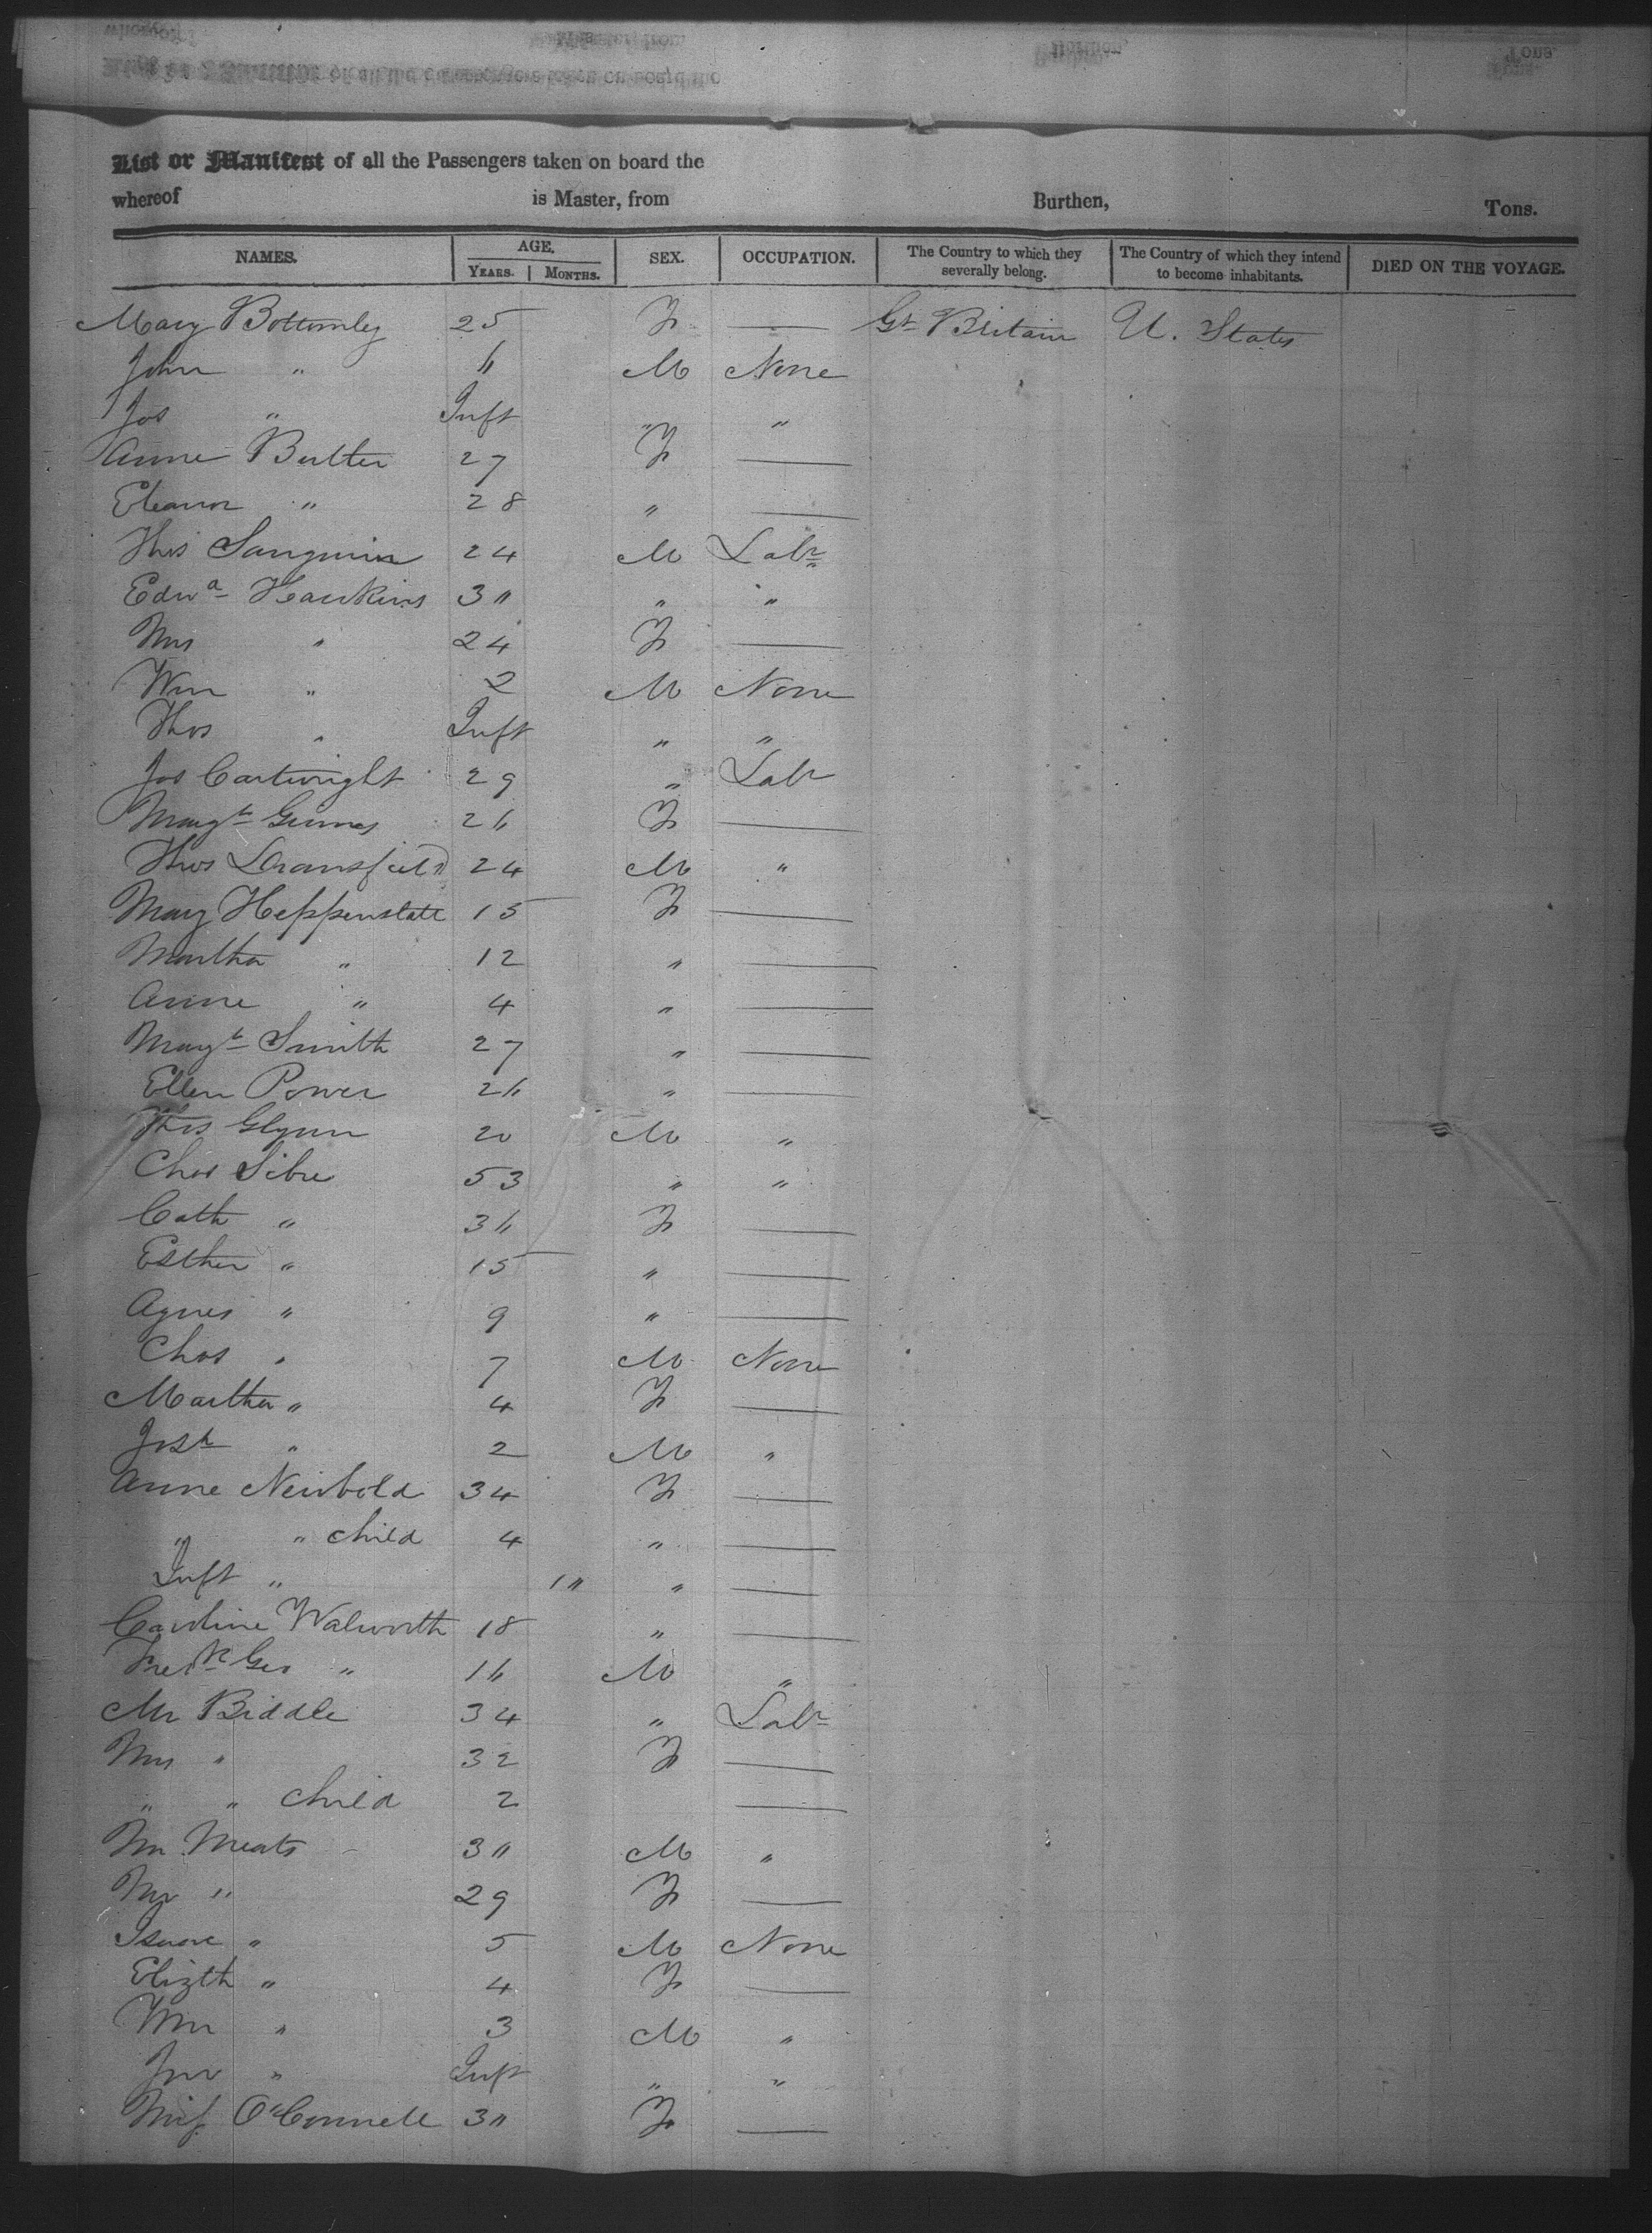 List or Manifest of all the Passengers taken on board the
whereof is Master, from Burthen, Tons.
NAMES. AGE. YEARS. MONTHS. SEX. OCCUPATION. The Country to which they severally belong. The Country of which they intend to become inhabitants. DIED ON THE VOYAGE.
Mary Bottomley 25 F — Gt Britain U. States
John " 6 M None
Jos " Inft " "
Anne Butler 27 F —
Eleanor " 28 " —
Thos Sanguin 24 M Labr
Edwd Hawkins 30 " "
Mrs " 24 F —
Wm " 2 M None
Thos " Inft " "
Jos Cartwright 29 " Labr
Margt 26 F —
Thos Dransfield 24 M "
Mary Heppenstall 15 F —
Martha " 12 " —
Anne " 4 " —
Margt Smith 27 " —
Ellen Power 26 " —
Thos Glynn 20 M "
Chas Sibre 53 " "
Cath " 36 F —
Esther " 15 " —
Agnes " 9 " —
Chas " 7 M None
Martha " 4 F —
Josh " 2 M "
Anne Newbold 34 F —
" " child 4 " —
Inft " 10 " —
Caroline Walworth 18 " —
Fredk Geo " 16 M "
Mr Biddle 34 " Labr
Mrs " 32 F —
" " child 2 —
Mr Meats 30 M "
Mrs " 29 F —
Isaac " 5 M None
Elizth " 4 F —
Wm " 3 M "
Jno " Inft " "
Miss O'Connell 30 F —